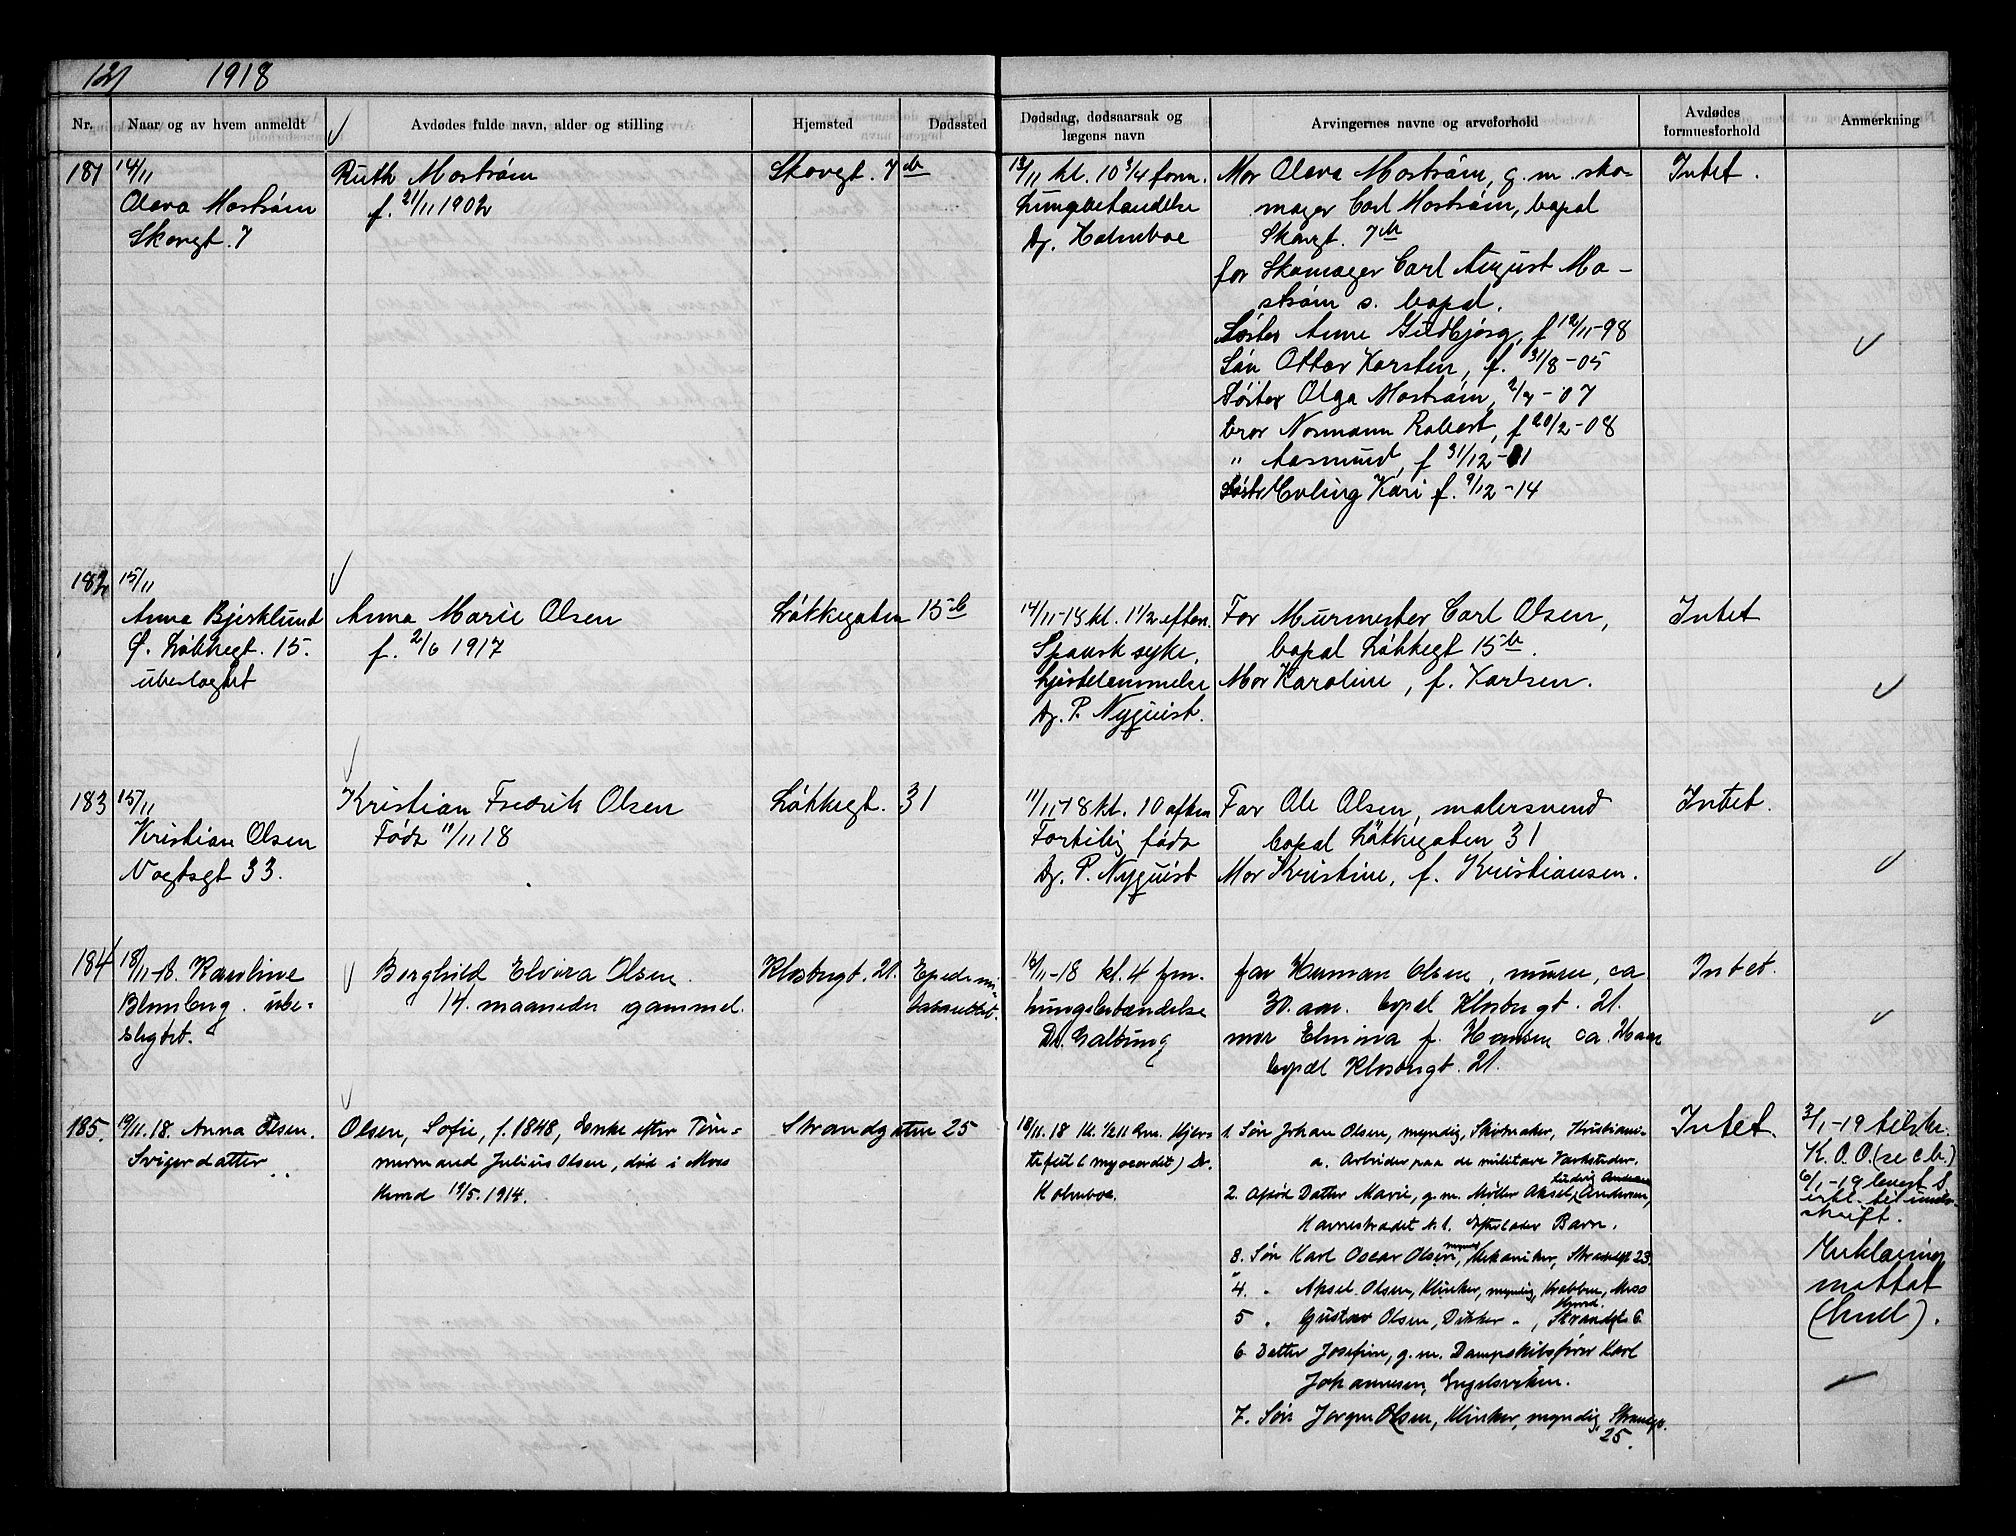 121 1918
Nr. Naar og av hvem anmeldt Avdødes fulde navn, alder og stilling Hjemsted Dødssted Dødsdag, dødsaarsak og lægens navn Arvingernes navne og arveforhold Avdødes formuesforhold Anmerkning
181 14/11
Olava Mostrøm
Skovgt. 7
Ruth Mostrøm
f. 21/11 1902
Skovgt. 7b
13/11 kl. 10 3/4 form.
Lungebetændelse
Dr. Holmboe
Mor Olava Mostrøm, g. m. sko-
mager Carl Mostrøm, bopæl
Skovgt. 7b
far Skomager Carl August Mo-
strøm s. bopæl.
Søster Anne Gudbjørg, f 12/11-98
Søn Ottar Karsten, f. 31/8-05
Søster Olga Mostrøm, 2/7-07
bror Normann Robert, f 20/2-08
" Aasmund, f 31/12-11
Søster Evling Kari f. 9/12-14
Intet.
182 15/11
Anna Bjerklund
Ø. Løkkegt. 15.
ubeslægtet
Anna Marie Olsen
f. 2/6 1917
Løkkegaten 15b
14/11-18 kl. 1 1/2 efterm.
Spansk syke,
hjertelammelse
Dr. P. Nyquist.
Far Murmester Carl Olsen,
bopæl Løkkegt 15b.
Mor Karoline, f. Karlsen.
Intet
183 15/11
Kristian Olsen
Vogtsgt 33.
Kristian Fredrik Olsen
Født 11/11 18
Løkkegt. 31
11/11-18 kl. 10 aften
Fortidlig født
Dr. P. Nyquist
Far Ole Olsen, malersvend
bopæl Løkkegaten 31
Mor Kristine, f. Kristiansen.
Intet.
184 18/11-18. Karoline
Blomberg. ube-
slegtet.
Borghild Elvira Olsen.
14. maaneder gammel.
Klostergt. 21.
Epidemi-
lasarettet.
16/11-18 kl. 4 fm.
Lungebetændelse
Dr. Galtung
far Herman Olsen, murer, ca
30. aar. bopæl Klostergt. 21.
mor Elmina f. Hansen ca.
bopæl Klostergt. 21.
Intet.
185. 19/11.18. Anna Olsen.
Svigerdatter
Olsen, Sofie, f. 1848, Enke efter Tøm-
mermand Julius Olsen, død i Moss
Herred 19/5.1914.
Strandgaten 25
18/11.18 kl. 1/2 11 fm. Hjer-
tefeil (myocardit) Dr.
Holmboe.
1. Søn Johan Olsen, myndig, Skomaker, Kristiani-
a. Arbeider paa de militære Værksteder.
2. Afdød Datter Marie, g. m. Møller Aksel Ludvig Andersen,
Havnestrædet Efterlader Barn.
3. Søn Karl Oscar Olsen, myndig, Mekaniker, Strandgt 23.
4. " Aksel Olsen, Klinker, myndig, Krabben, Moss Herred.
5 " Gustav Olsen, Dikker " , Strandgt 6.
6 Datter Josefine, g. m. Dampskibsfører Karl
Johannesen, Engelsviken.
7. Søn Jørgen Olsen, Klinker, myndig, Strandgt.
25.
Intet.
3/1-19 tilskr.
K. O. O. (se c.b.)
6/1-19 levert S.
erkl. til under-
skrift.
Erklæring
mottat
(hud).